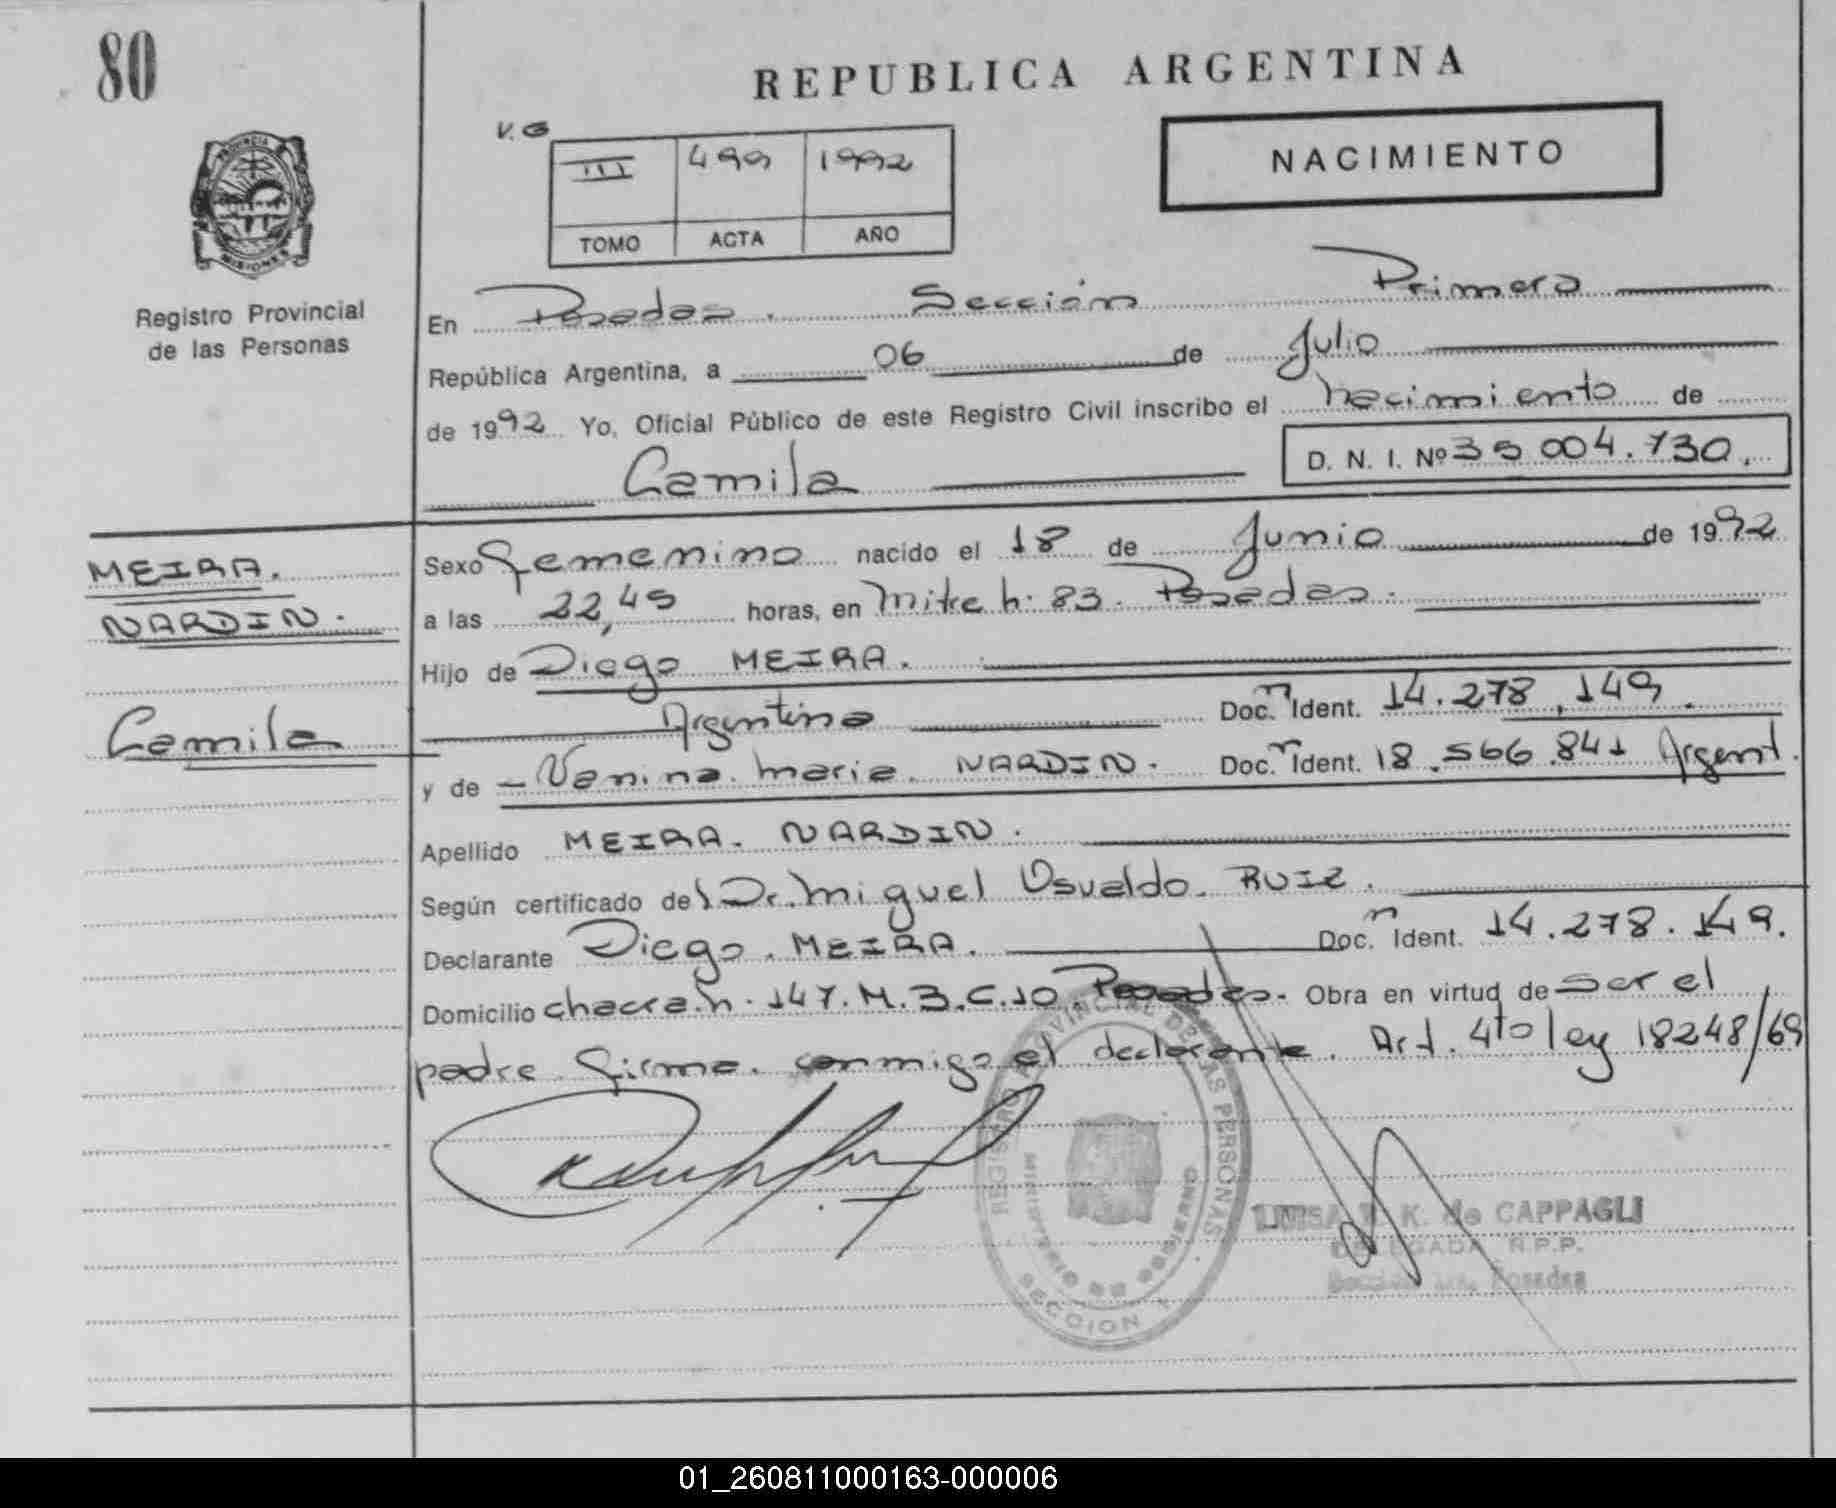 80
REPUBLICA ARGENTINA
V. G
III 499 1992
TOMO ACTA AÑO
NACIMIENTO
PROVINCIA DE MISIONES
Registro Provincial
de las Personas
En Posadas. Sección Primera
República Argentina, a 06 de Julio
de 1992 Yo, Oficial Público de este Registro Civil inscribo el nacimiento de
Camila D. N. I. Nº 35 004.730.
MEIRA.
NARDIN.
Camila
Sexo Femenino nacido el 18 de Junio de 1992
a las 22,45 horas, en Mitre h. 83. Posadas.
Hijo de Diego MEIRA.
Argentino Doc. n Ident. 14.278.149.
y de Vanina maria NARDIN. Doc. n Ident. 18.566.841 Argent.
Apellido MEIRA. NARDIN.
Según certificado del Dr. Miguel Osvaldo. RUIZ.
Declarante Diego. MEIRA. Doc. n Ident. 14.278.149.
Domicilio chacra.h. 147. M. 3. C. 10. Posadas. Obra en virtud de ser el
padre firma. conmigo el declarante. Art. 4to ley 18248/69
REGISTRO PROVINCIAL DE LAS PERSONAS
MINISTERIO DE GOBIERNO
SECCION 1
K. de CAPPAGLI
DELEGADA R.P.P.
Sección 1ra. Posadas
01_260811000163-000006